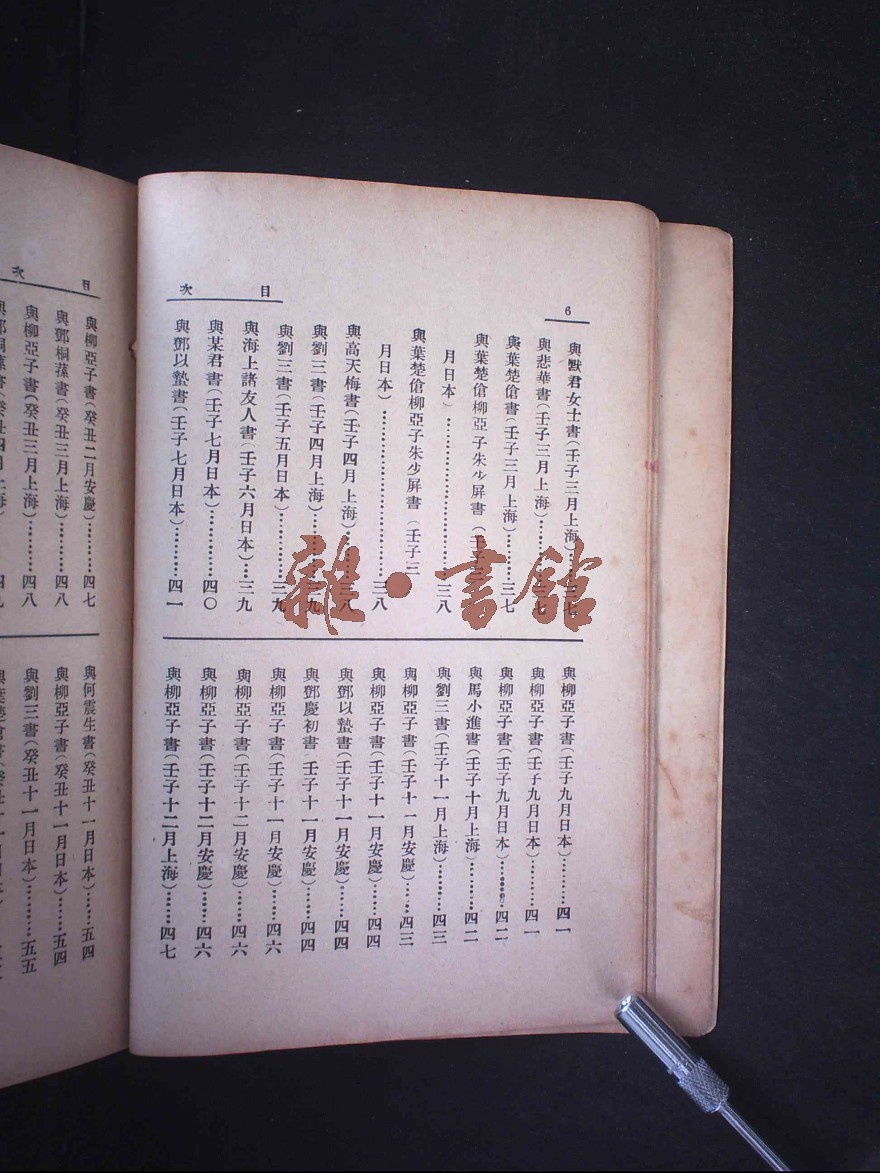 6
目次
與默君女士書(壬子三月上海)…三七
與悲華書(壬子三月上海)…三七
與葉楚傖書(壬子三月上海)…三七
與葉楚傖柳亞子朱少屏書(壬子三
月日本)…三八
與葉楚傖柳亞子朱少屏書(壬子三
月日本)…三八
與高天梅書(壬子四月上海)…三八
與劉三書(壬子四月上海)…三九
與劉三書(壬子五月日本)…三九
與海上諸友人書(壬子六月日本)…三九
與某君書(壬子七月日本)…四〇
與鄧以蟄書(壬子七月日本)…四一
與柳亞子書(壬子九月日本)…四一
與柳亞子書(壬子九月日本)…四一
與柳亞子書(壬子九月日本)…四二
與馬小進書(壬子十月上海)…四二
與劉三書(壬子十一月上海)…四三
與柳亞子書(壬子十一月安慶)…四三
與柳亞子書(壬子十一月安慶)…四四
與鄧以蟄書(壬子十一月安慶)…四四
與鄧慶初書 壬子十一月安慶)…四四
與柳亞子書(壬子十一月安慶)…四六
與柳亞子書(壬子十二月安慶)…四六
與柳亞子書(壬子十二月安慶)…四六
與柳亞子書(壬子十二月上海)…四七
雜·書館
目次
與柳亞子書(癸丑二月安慶)…四七
與鄧桐蓀書(癸丑三月上海)…四八
與柳亞子書(癸丑三月上海)…四八
與何震生書(癸丑十一月日本)…五四
與柳亞子書(癸丑十一月日本)…五四
與劉三書(癸丑十一月日本)…五五